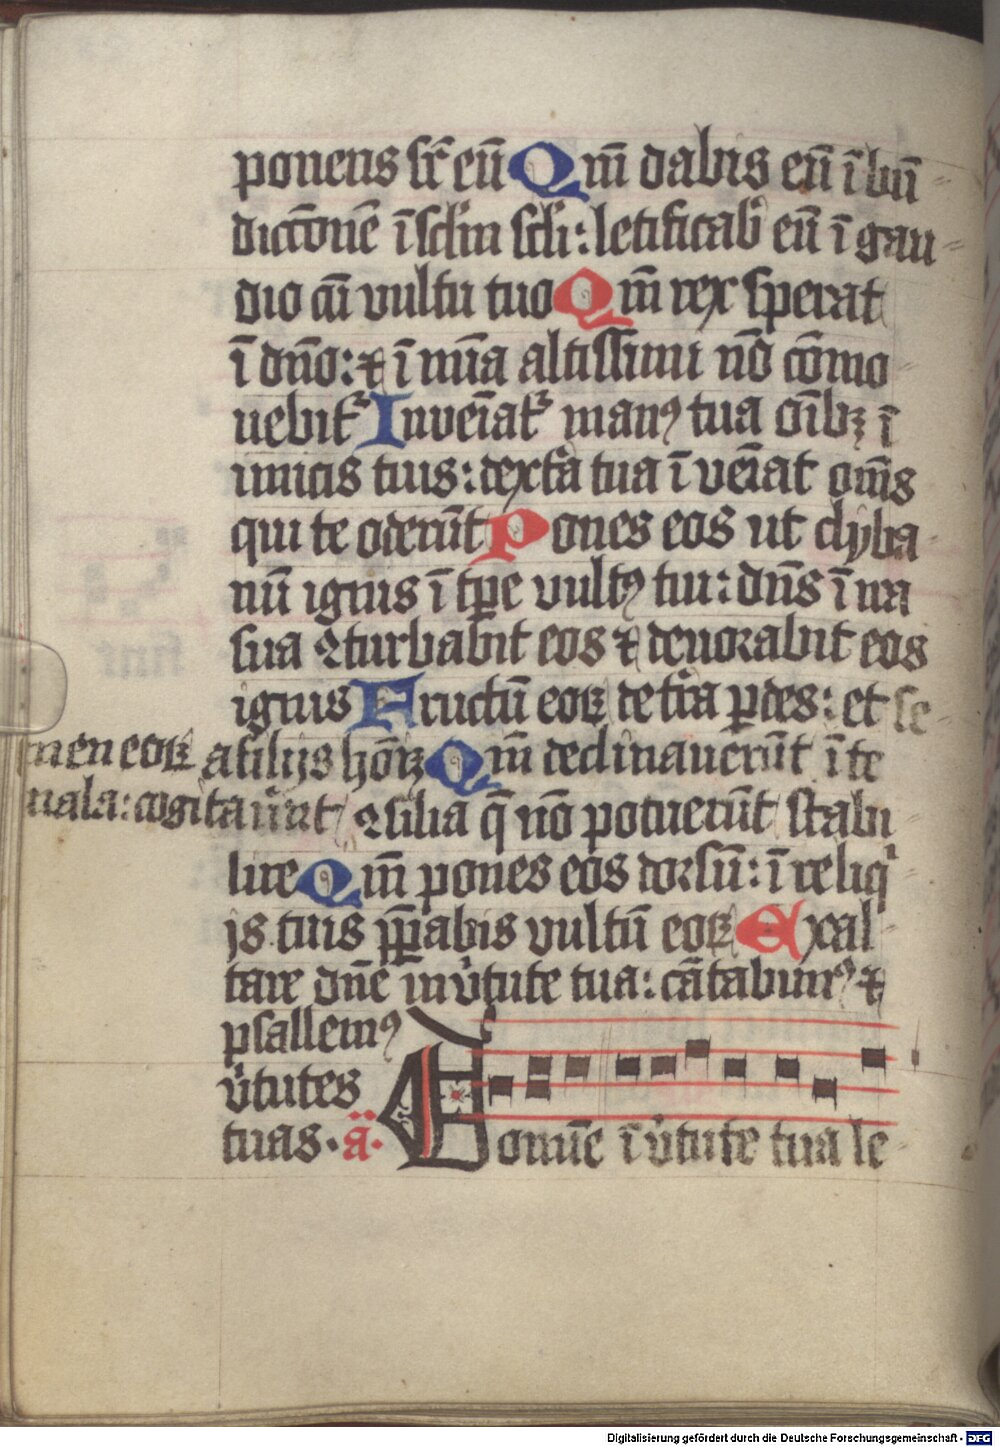 ponens suꝑ eū Qm̄ dabis eū ī bn̄
dicc̄onē ī sclm̄ scli: letificab̄ eū ī gau
dio cū vultu tuo Qm̄ rex sperat
ī dn̄o: ⁊ ī mīa altissimi nō cōmo
uebit᷑ Inueīat᷑ manꝰ tua oībꝫ ī
imicis tuis: dext̄a tua ī veīat om̄s
qui te oderūt Pones eos ut clyba
nū ignis ī tꝑe vultꝰ tui: dn̄s ī ira
sua ꝯturbabit eos ⁊ deuorabit eos
ignis Fructū eoꝝ de t̄ra ꝑdes: et se
men eoꝝ a filijs hoīꝫ Qm̄ declinauerūt ī te
mala: cogitauer̄ut ꝯsilia q̄ nō potuerūt stabi
lire Qm̄ pones eos dorsū: ī reliqͥ
js tuis p̄ꝑabis vultū eoꝝ Exal
tare dn̄e in v̄tute tua: cātabimꝰ ⁊
psallemꝰ
v̄tutes
tuas. a.
Domīe ī v̄tute tua le